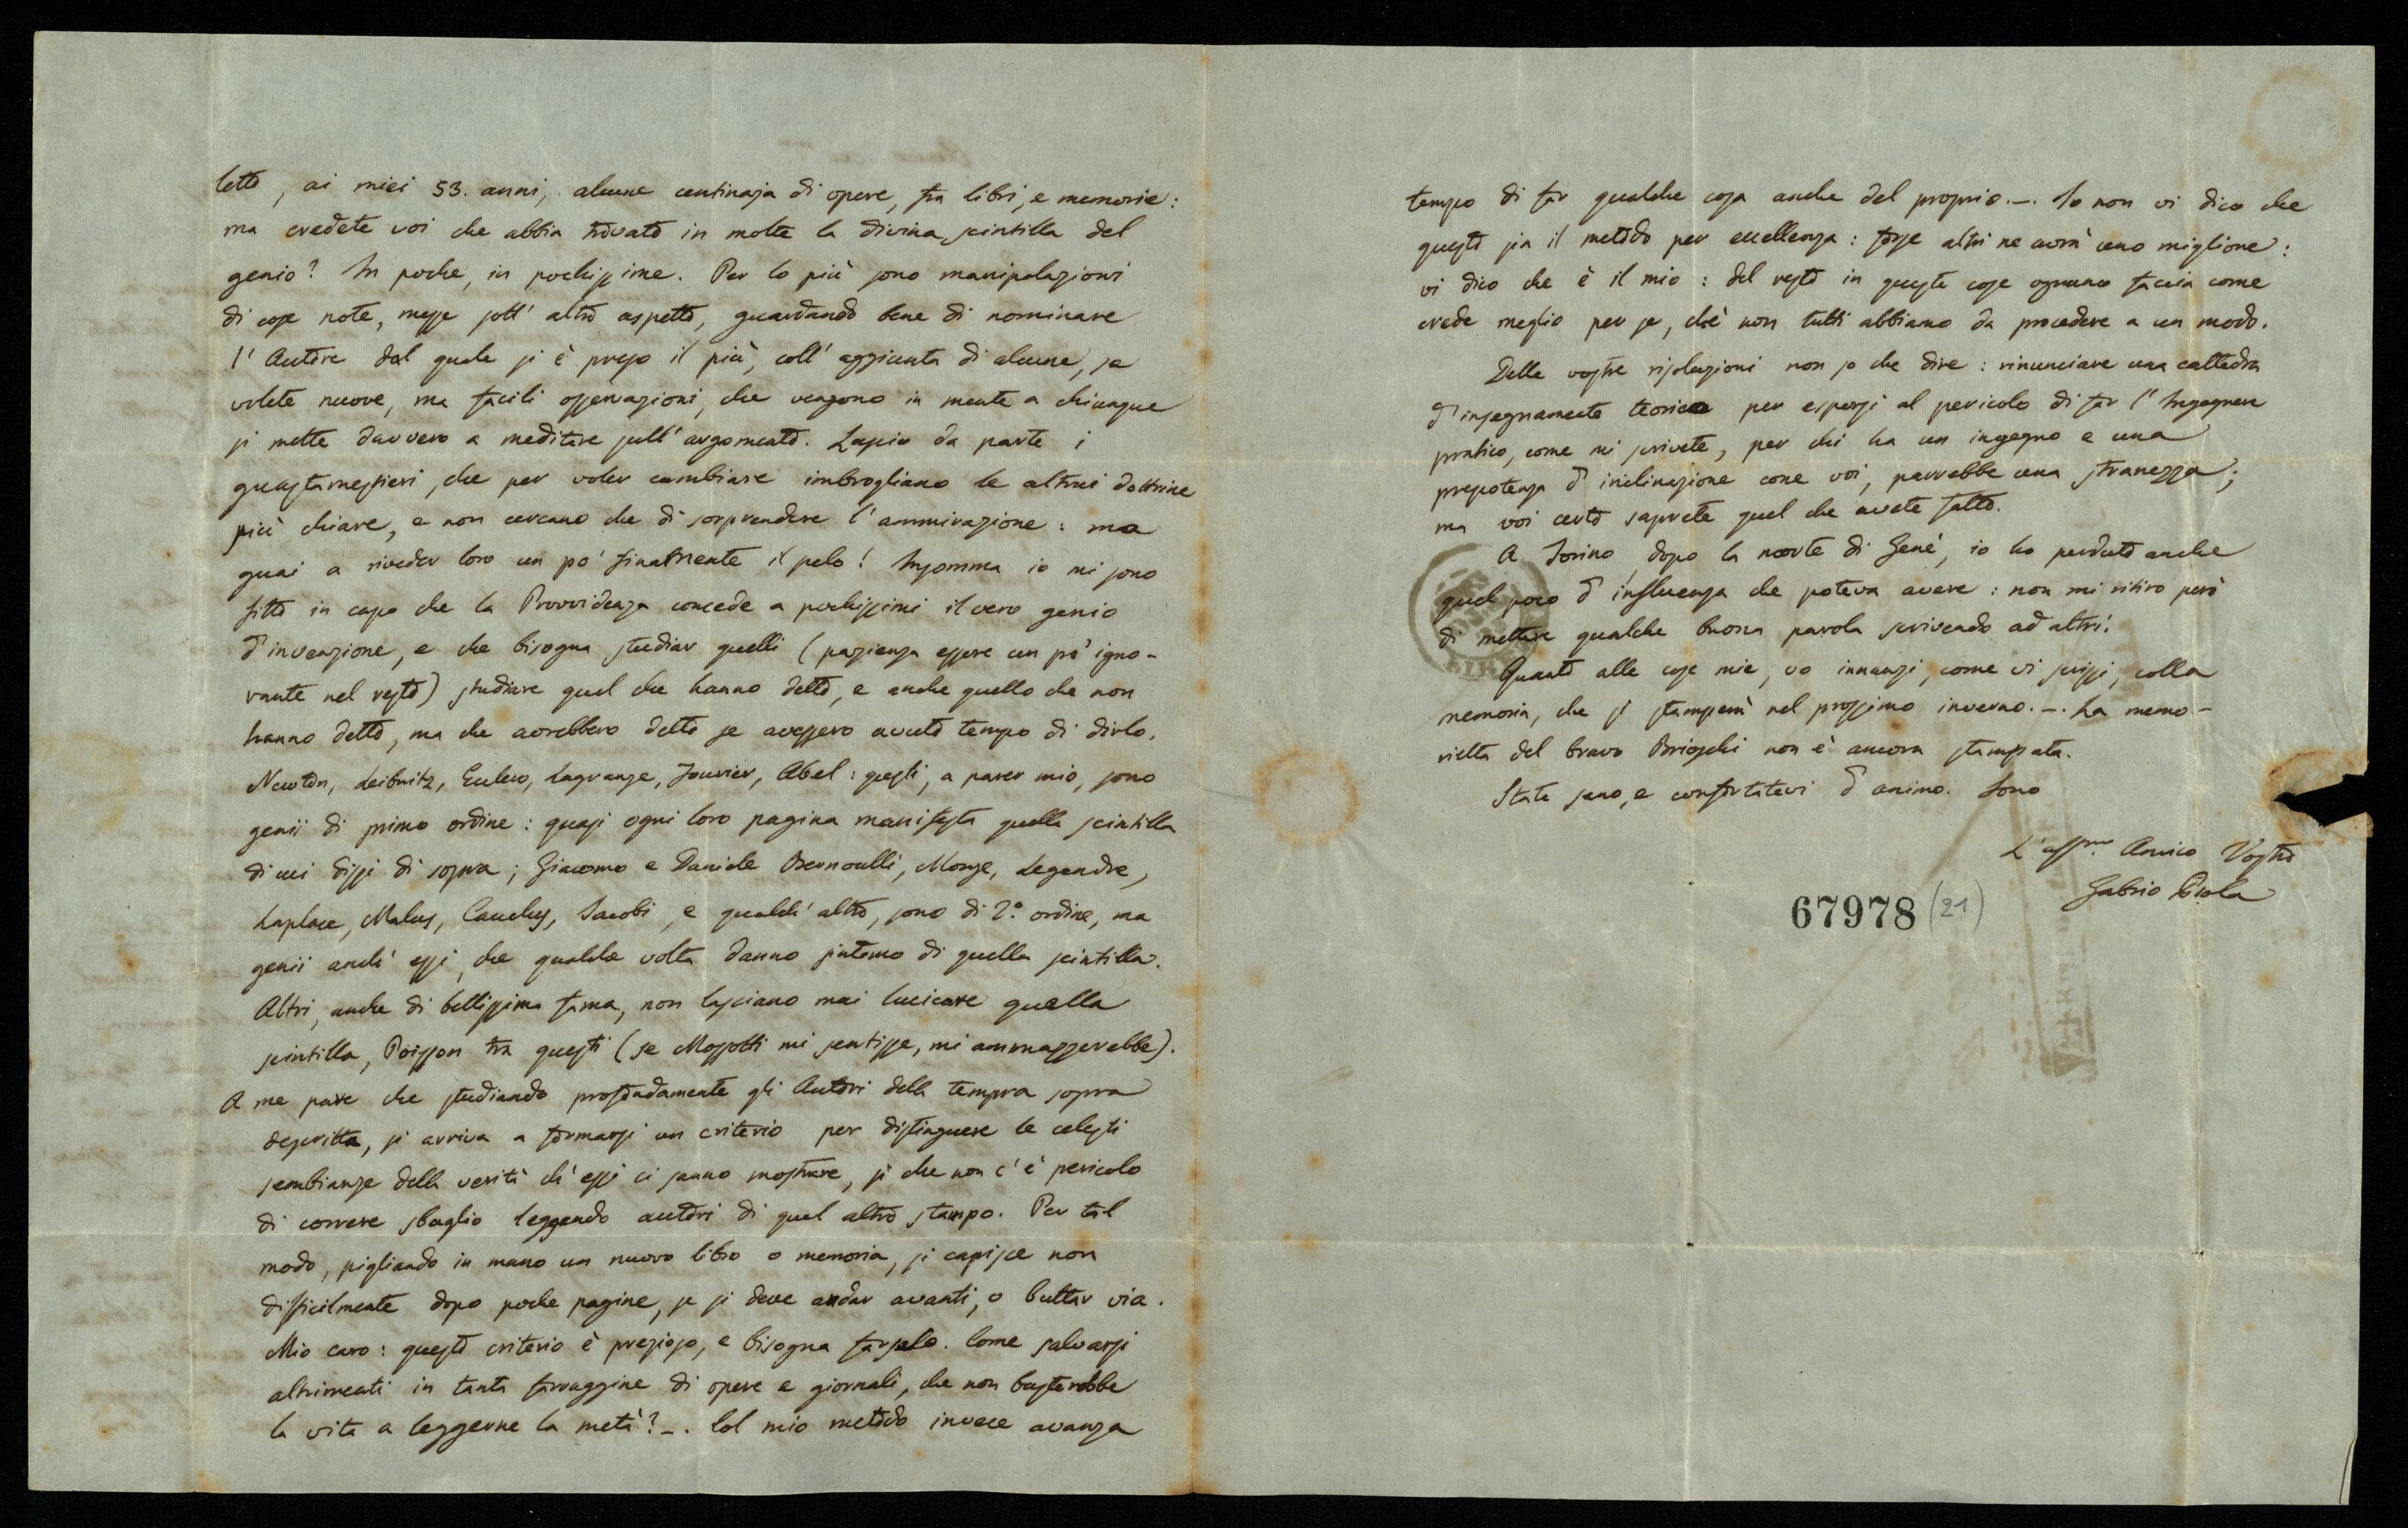 letto, ai miei 53. anni, alcune centinaja di opere, fra libri, e memorie:
ma credete voi che abbia trovato in molte la divina scintilla del
genio? In poche, in pochissime. Per lo più sono manipolazioni
di cose note, messe sott' altro aspetto, guardando bene di nominare
l' Autore dal quale si è preso il più, coll' aggiunta di alcune, se
volete nuove, ma facili osservazioni, che vengono in mente a chiunque
si mette davvero a meditare sull' argomento. Lascio da parte i
guastamestieri, che per voler cambiare imbrogliano le altrui dottrine
più chiare, e non cercano che di sorprendere l' ammirazione: ma
guai a riveder loro un po' finamente il pelo! Insomma io mi sono
fitto in capo che la Provvidenza concede a pochissimi il vero genio
d' invenzione, e che bisogna studiar quelli (pazienza essere un po' igno-
rante nel resto) studiare quel che hanno detto, e anche quello che non
hanno detto, ma che avrebbero detto se avessero avuto tempo di dirlo.
Newton, Leibnitz, Eulero, Lagrange, Fourier, Abel: questi, a parer mio, sono
genii di primo ordine: quasi ogni loro pagina manifesta quella scintilla
di cui dissi di sopra; Giacomo e Daniele Bernoulli, Monge, Legendre,
Laplace, Malus, Cauchy, Jacobi, e qualch' altro, sono di 2.° ordine, ma
genii anch' essi, che qualche volta danno sintomo di quella scintilla.
Altri, anche di bellissima fama, non lasciano mai lucicare quella
scintilla, Poisson tra questi (se Mossotti mi sentisse, mi ammazzerebbe).
A me pare che studiando profondamente gli Autori della tempra sopra
descritta, si arriva a formarsi un criterio per distinguere le celesti
sembianze della verità ch' essi ci sanno mostrare, sì che non c' è pericolo
di correre sbaglio leggendo autori di quel altro stampo. Per tal
modo, pigliando in mano un nuovo libro o memoria, si capisce non
difficilmente dopo poche pagine, se si deve andar avanti, o buttar via.
Mio caro: questo criterio è prezioso, e bisogna farselo. Come salvarsi
altrimenti in tanta farraggine di opere e giornali, che non basterebbe
la vita a leggerne la metà? _. Col mio metodo invece avanza
tempo di far qualche cosa anche del proprio. _. Io non vi dico che
questo sia il metodo per eccellenza: forse altri ne avrà uno migliore:
vi dico che è il mio: del resto in queste cose ognuno faccia come
crede meglio per se, chè non tutti abbiamo da procedere a un modo.
Delle vostre risoluzioni non so che dire: rinunciare una cattedra
d' insegnamento teorico per esporsi al pericolo di far l' Ingegnere
pratico, come mi scrivete, per chi ha un ingegno e una
prepotenza d' inclinazione come voi, parrebbe una stranezza;
ma voi certo saprete quel che avete fatto.
A Torino, dopo la morte di Gené, io ho perduto anche
quel poco d' influenza che poteva avere: non mi ritiro però
di mettere qualche buona parola scrivendo ad altri.
Quanto alle cose mie, vo innanzi, come vi scrissi, colla
memoria, che si stamperà nel prossimo inverno. _. La memo-
rietta del bravo Brioschi non è ancora stampata.
State sano, e confortatevi d' animo. Sono
L' aff.mo Amico Vostro
Gabrio Piola
67978 (21)